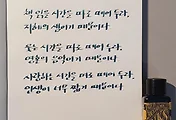 책 읽을 시간을 따로 떼어 두라,
지혜의 샘이기 때문이다
웃는 시간을 따로 떼어 두라,
영혼의 음악이기 때문이다
사랑하는 시간을 따로 떼어 두라,
인생이 너무 짧기 때문이다